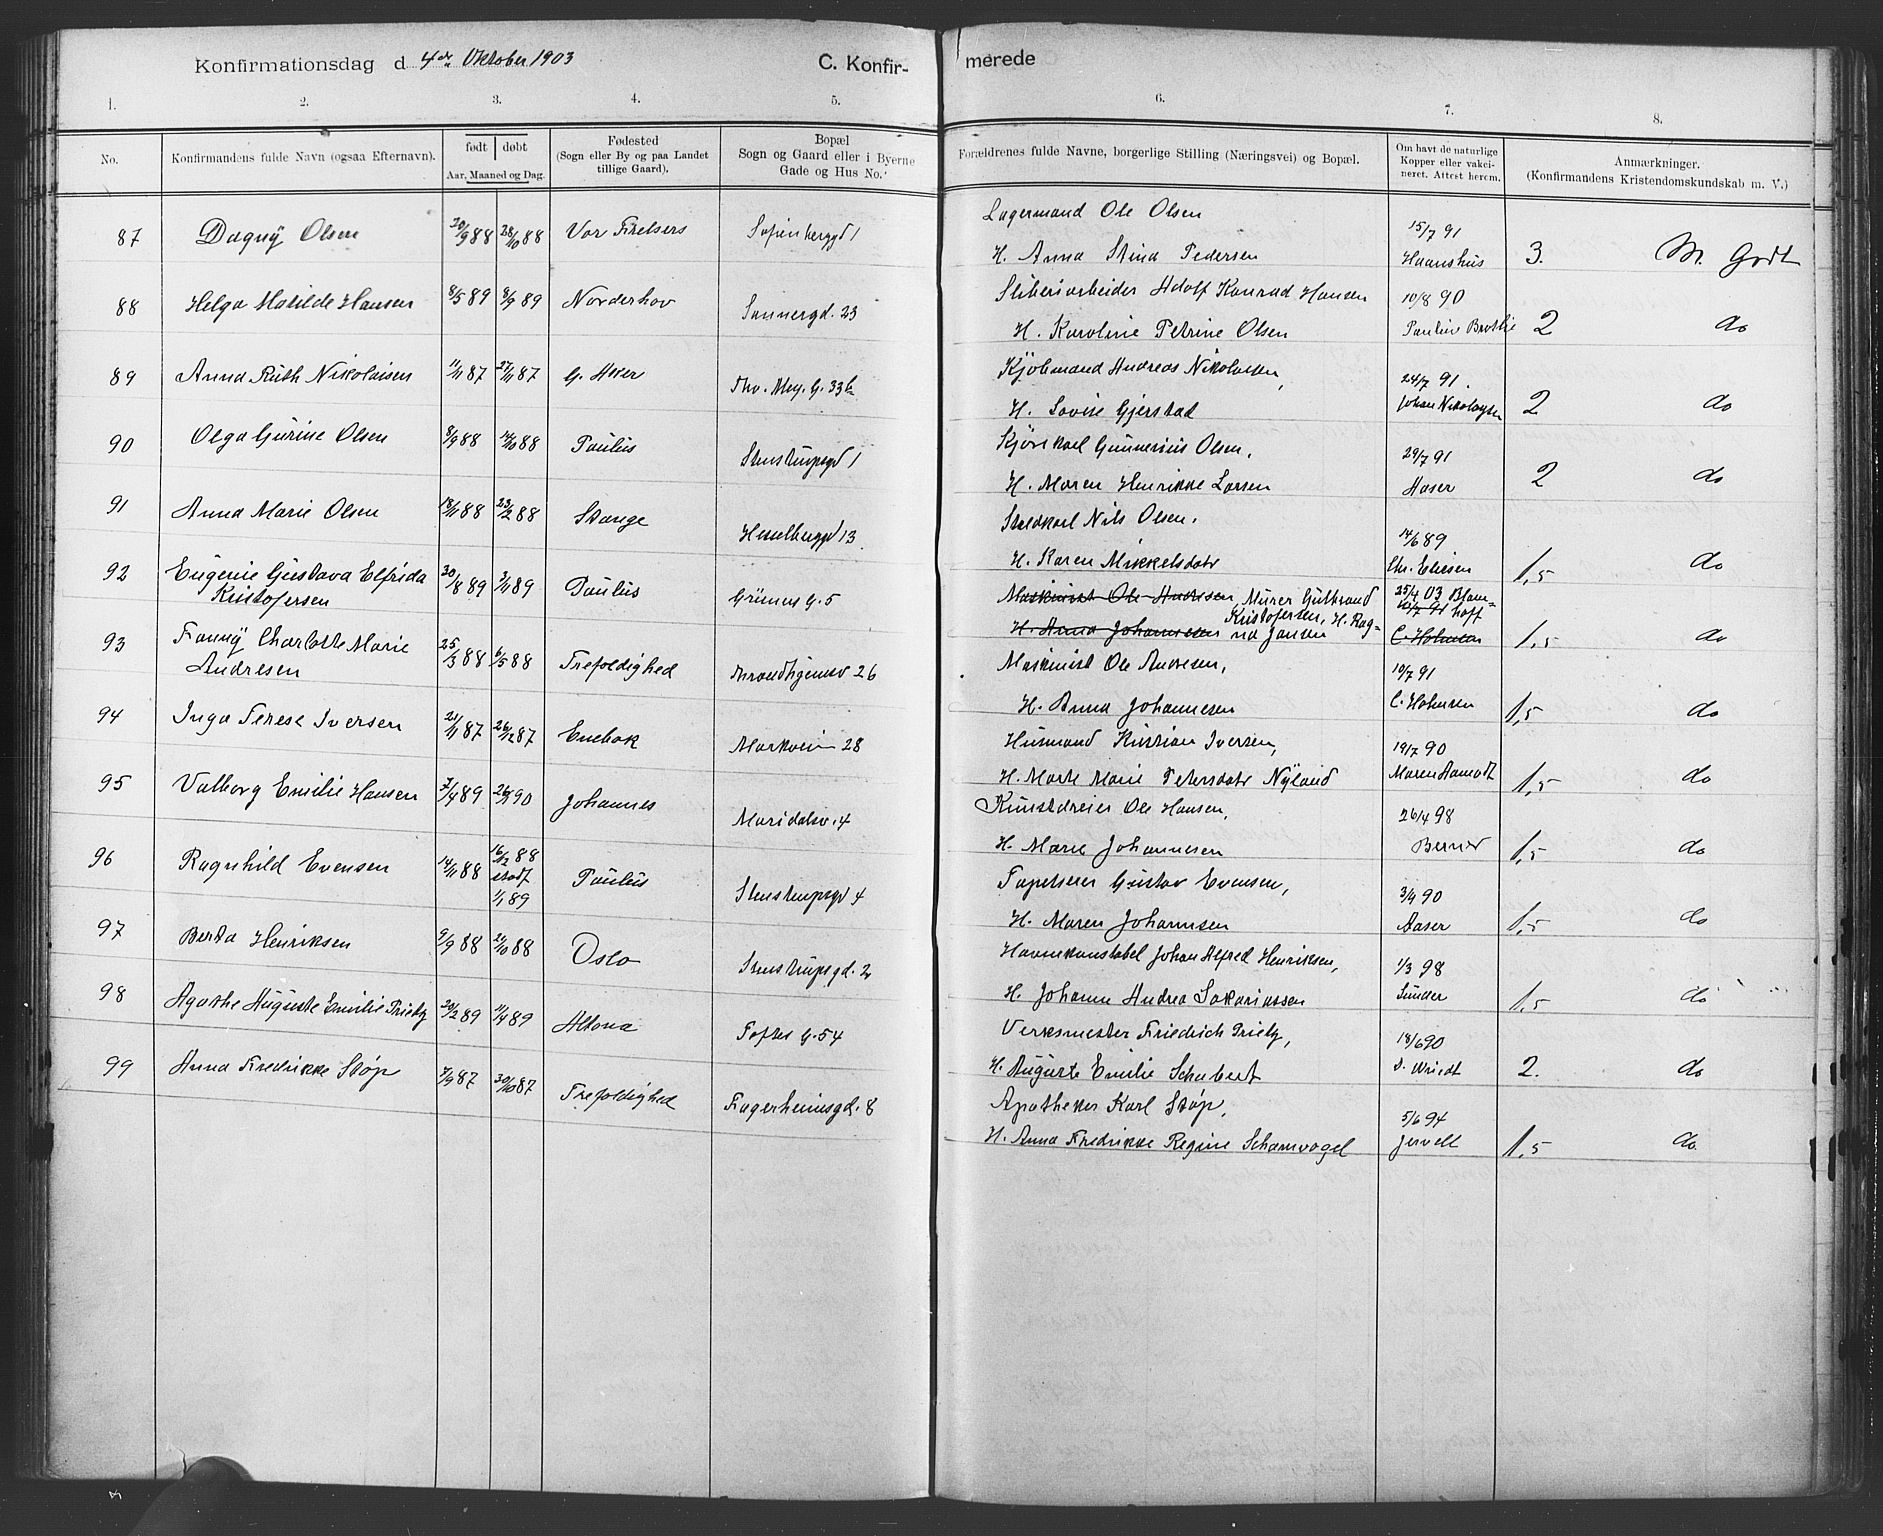 Konfirmationsdag d 4de Oktober 1903 C. Konfir- merede
1. 2. 3. 4. 5. 6. 7. 8.
No. Konfirmandens fulde Navn (ogsaa Efternavn). født døbt Aar, Maaned og Dag. Fødested (Sogn eller By og paa Landet tillige Gaard). Bopæl Sogn og Gaard eller i Byerne Gade og Hus No. Forældrenes fulde Navne, borgerlige Stilling (Næringsvei) og Bopæl. Om havt de naturlige Kopper eller vakcineret. Attest herom. Anmærkninger. (Konfirmandens Kristendomskundskab m. V.)
87 Dagny Olsen 20/9 88 28/10 88 Vor Frelsers Sofienberggd 1 Lagermand Ole Olsen 15/7 91
H. Anna Stina Pedersen Haanshus 3. M. Godt
88 Helga Matilde Hansen 8/5 89 8/9 89 Norderhov Sannergd. 23 Sliberiarbeider Adolf Konrad Hansen 10/8 90
H. Karoline Petrine Olsen 2 do
89 Anna Ruth Nikolaisen 11/11 87 27/11 87 G. Aker Thv. Mey. G. 33b Kjøbmand Andreas Nikolaisen, 24/7 91.
H. Lovise Gjerstad Johan Nikolaysen 2 do
90 Olga Gurine Olsen 8/9 88 14/10 88 Paulus Stenstrupsgd 1 Kjørekarl Gunnerius Olsen, 29/7 91
H. Maren Henrikke Larsen Aaser 2 do
91 Anna Marie Olsen 18/11 88 23/12 88 Stange Hesselberggd 13 Stedkarl Nils Olsen, 14/6 89
H. Karen Mikkelsdatr Chr. Eliesen 1,5 do
92 Eugenie Gustava Elfrida 30/8 89 3/11 89 Paulus Grüners G. 5 Maskinist Ole Andresen, Murer Gulbrand 25/4 03
Kristofersen Kristofersen, H. Rag-
H. Anna Johannesen na Jansen C. Holmsen 1,5 do
93 Fanny Charlotte Marie 25/3 88 6/5 88 Trefoldighed Trondhjemsv 26 Maskinist Ole Andresen, 10/7 91
Andresen H. Anna Johannesen C. Holmsen 1,5 do
94 Inga Terese Iversen 21/11 87 26/12 87 Enebak Markvein 28 Husmand Kristian Iversen, 19/7 90
H. Marte Marie Petersdatr Nyland Maren Aamodt 1,5 do
95 Valborg Emilie Hansen 7/4 89 Johannes Maridalsv. 4 Kunstdreier Ole Hansen, 26/4 98
H. Marie Johannesen Berner 1,5 do
96 Ragnhild Evensen 14/11 88 16/12 88 stadf 1/1 89 Paulus Stenstrupsgd 4 Tapetserer Gustav Evensen, 3/9 90
H. Maren Johannsen Aaser 1,5 do
97 Berta Henriksen 9/9 88 21/10 88 Oslo Stenstrupsgd. 2 Havnekonstabel Johan Alfred Henriksen, 1/3 98
H. Johanne Andrea Sakariassen Sunder 1,5 do
98 Agathe Auguste Emilie Prietz 20/2 89 11/4 89 Altona Toftes G. 54 Verksmester Friedrich Prietz, 18/6 90
H. Auguste Emilie Schubert D. Wriedt 2. do
99 Anna Fredrikke Støp 7/9 87 30/10 87 Trefoldighed Fagerheimsgd. 8 Apotheker Karl Støp, 5/6 94
H. Anna Fredrikke Regine Schamvogel Jervell 1,5 do.